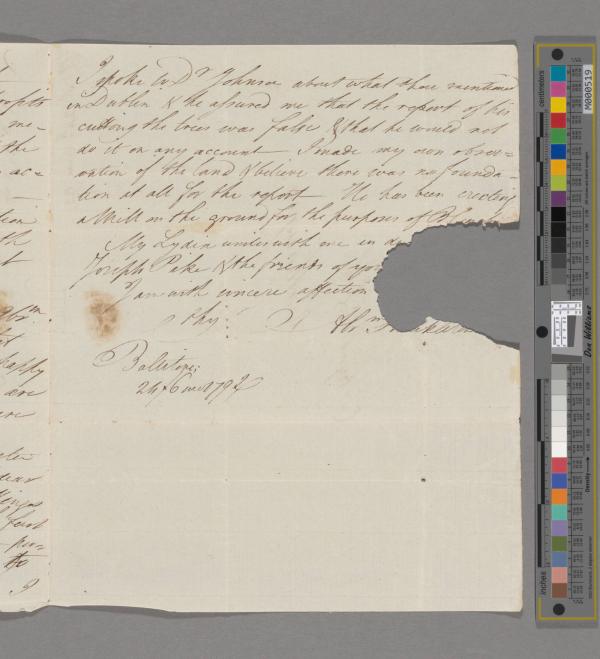 I spoke to Dr. Johnson about what thou mentioned
in Dublin & he assured me that the report of his
cutting the trees was false & that he would not
do it on any account I made my own obser=
vation of the land & believe there was no founda=
tion at all for the report He has been erecting
a Mill on the ground for the purposes of
My Lydia unites with me in
Joseph Pike & the friends of
I am with sincere affection
thy
Balitore
24 6 mo 179
centimeters
M000519
Don Williams
inches
rofits
me=
the
ac=
tion
th
t
happy
are
ere
dear
first
to
I